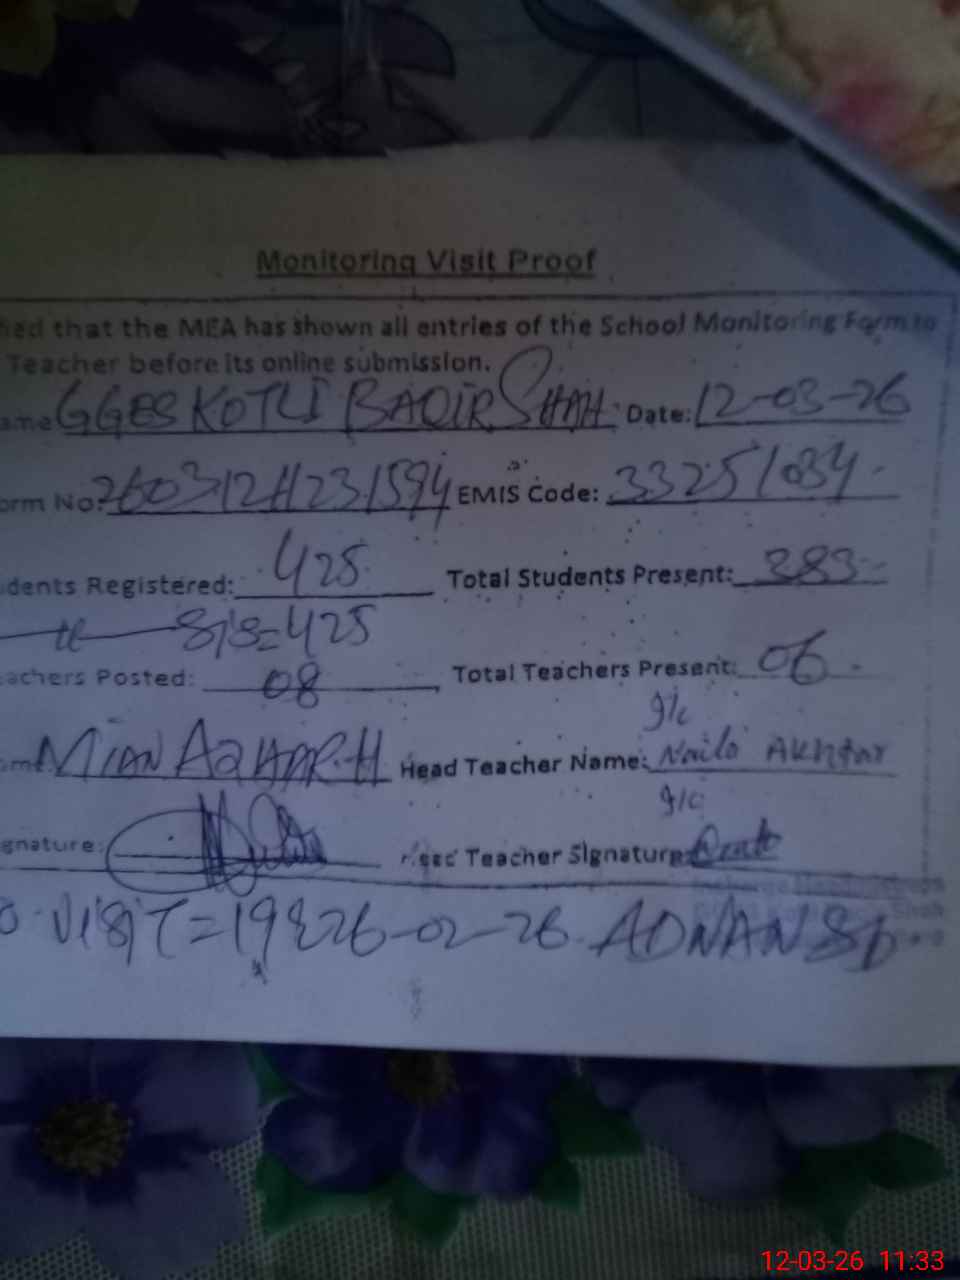 Monitoring Visit Proof
fied that the MEA has shown all entries of the School Monitoring Form to
Teacher before its online submission.
ame GGES KOTLI BAQIR SHAH Date: 12-03-26
orm No: EMIS Code: 33251034
dents Registered: 425 Total Students Present: 383
SIS=425
achers Posted: 08 Total Teachers Present: 06
g/c
ame MIAN AZHAR.H Head Teacher Name: Naila Akhtar
g/c
gnature: Teacher Signature:
VISIT=19 & 26-02-26. ADNAN SB
12-03-26 11:33